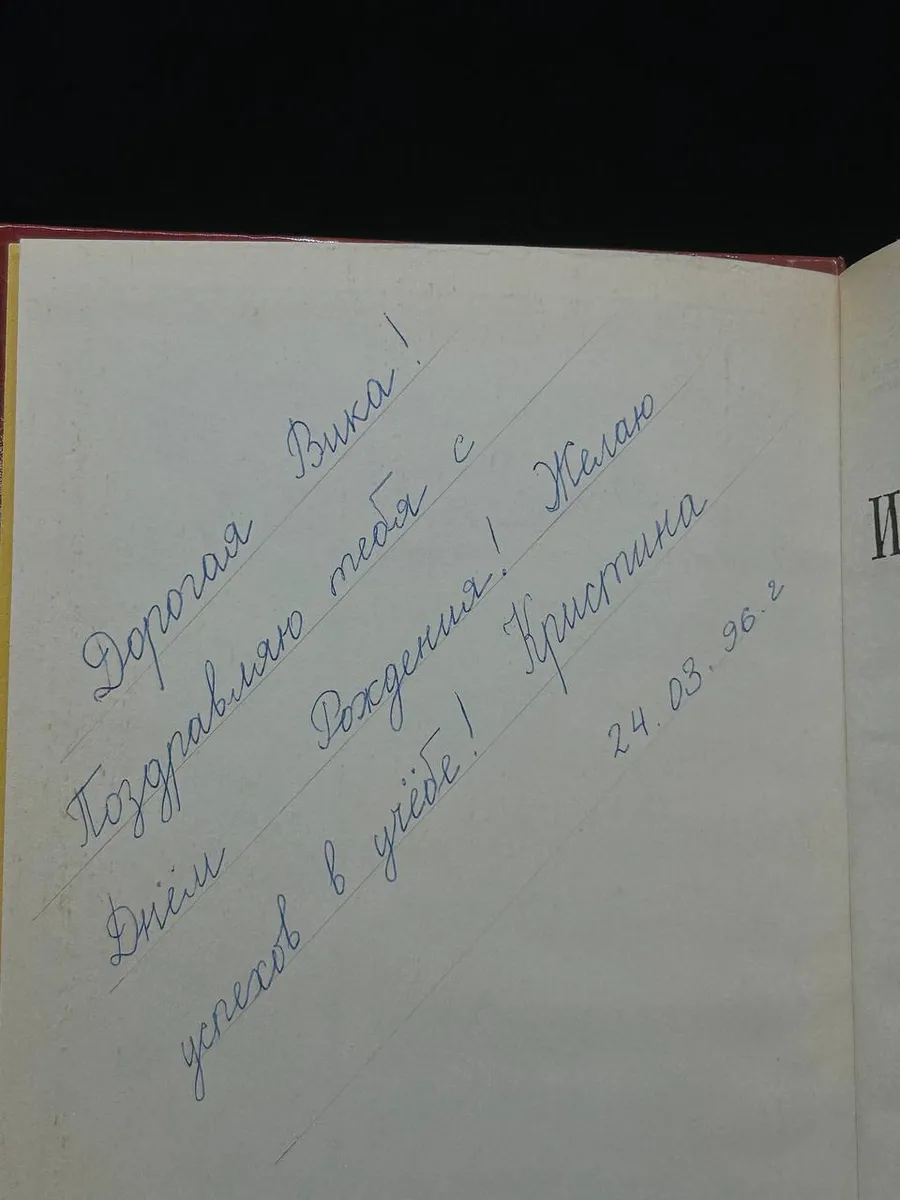 Дорогая Вика!
Поздравляю тебя с
Днём Рождения! Желаю
успехов в учёбе! Кристина
24.03.96.г
И